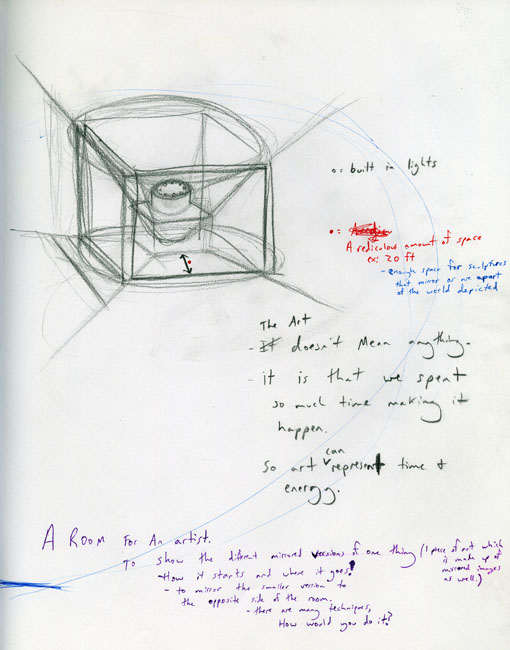 o = built in lights
• =
A rediculous amount of space
ex: 20 ft
- enough space for sculptures
that mirror or are apart
of the world depicted
The Art
- It doesn't mean anything.
- it is that we spent
so much time making it
happen.
So art can represent time &
energy.
A Room For An artist.
To show the different mirrored versions of one thing (1 piece of art which
is made up of
mirrored images
as well.)
- How it starts and where it goes!
- to mirror the smaller version to
the opposite side of the room.
- there are many techniques,
How would you do it?